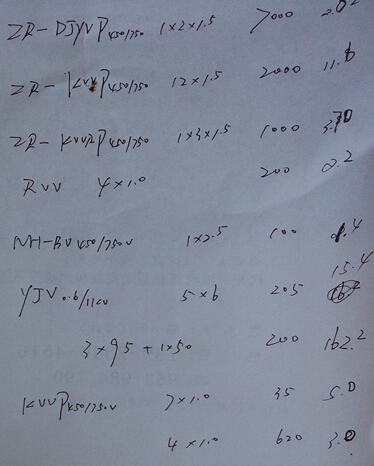 ZR-DJYVP450/750 1×2×1.5 7000 2.82
ZR-KVVP450/750 12×1.5 2000 11.6
ZR-KVVRP450/750 1×3×1.5 1000
RVV 4×1.0 200 2.2
NH-BV450/750V 1×2.5 100
15.4
YJV0.6/1KV 5×6 205
3×95+1×50 200 162.2
KVVP450/750V 7×1.0 35 5.0
4×1.0 620 3.0